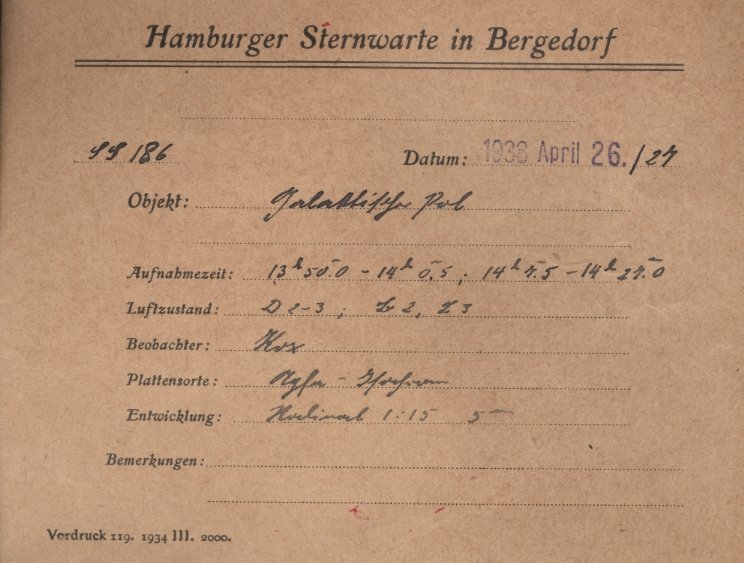 Hamburger Sternwarte in Bergedorf
SS 186 Datum: 1938 April 26./27
Objekt: Galaktischer Pol
Aufnahmezeit: 13h 50.0 - 14h 0.5 ; 14h 7.5 - 14h 27.0
Luftzustand: D 2-3 ; L 2, Z 3
Beobachter: Kox
Plattensorte: Agfa - Isochrom
Entwicklung: Rodinal 1:15 5m
Bemerkungen:
Vordruck 119. 1934 III. 2000.